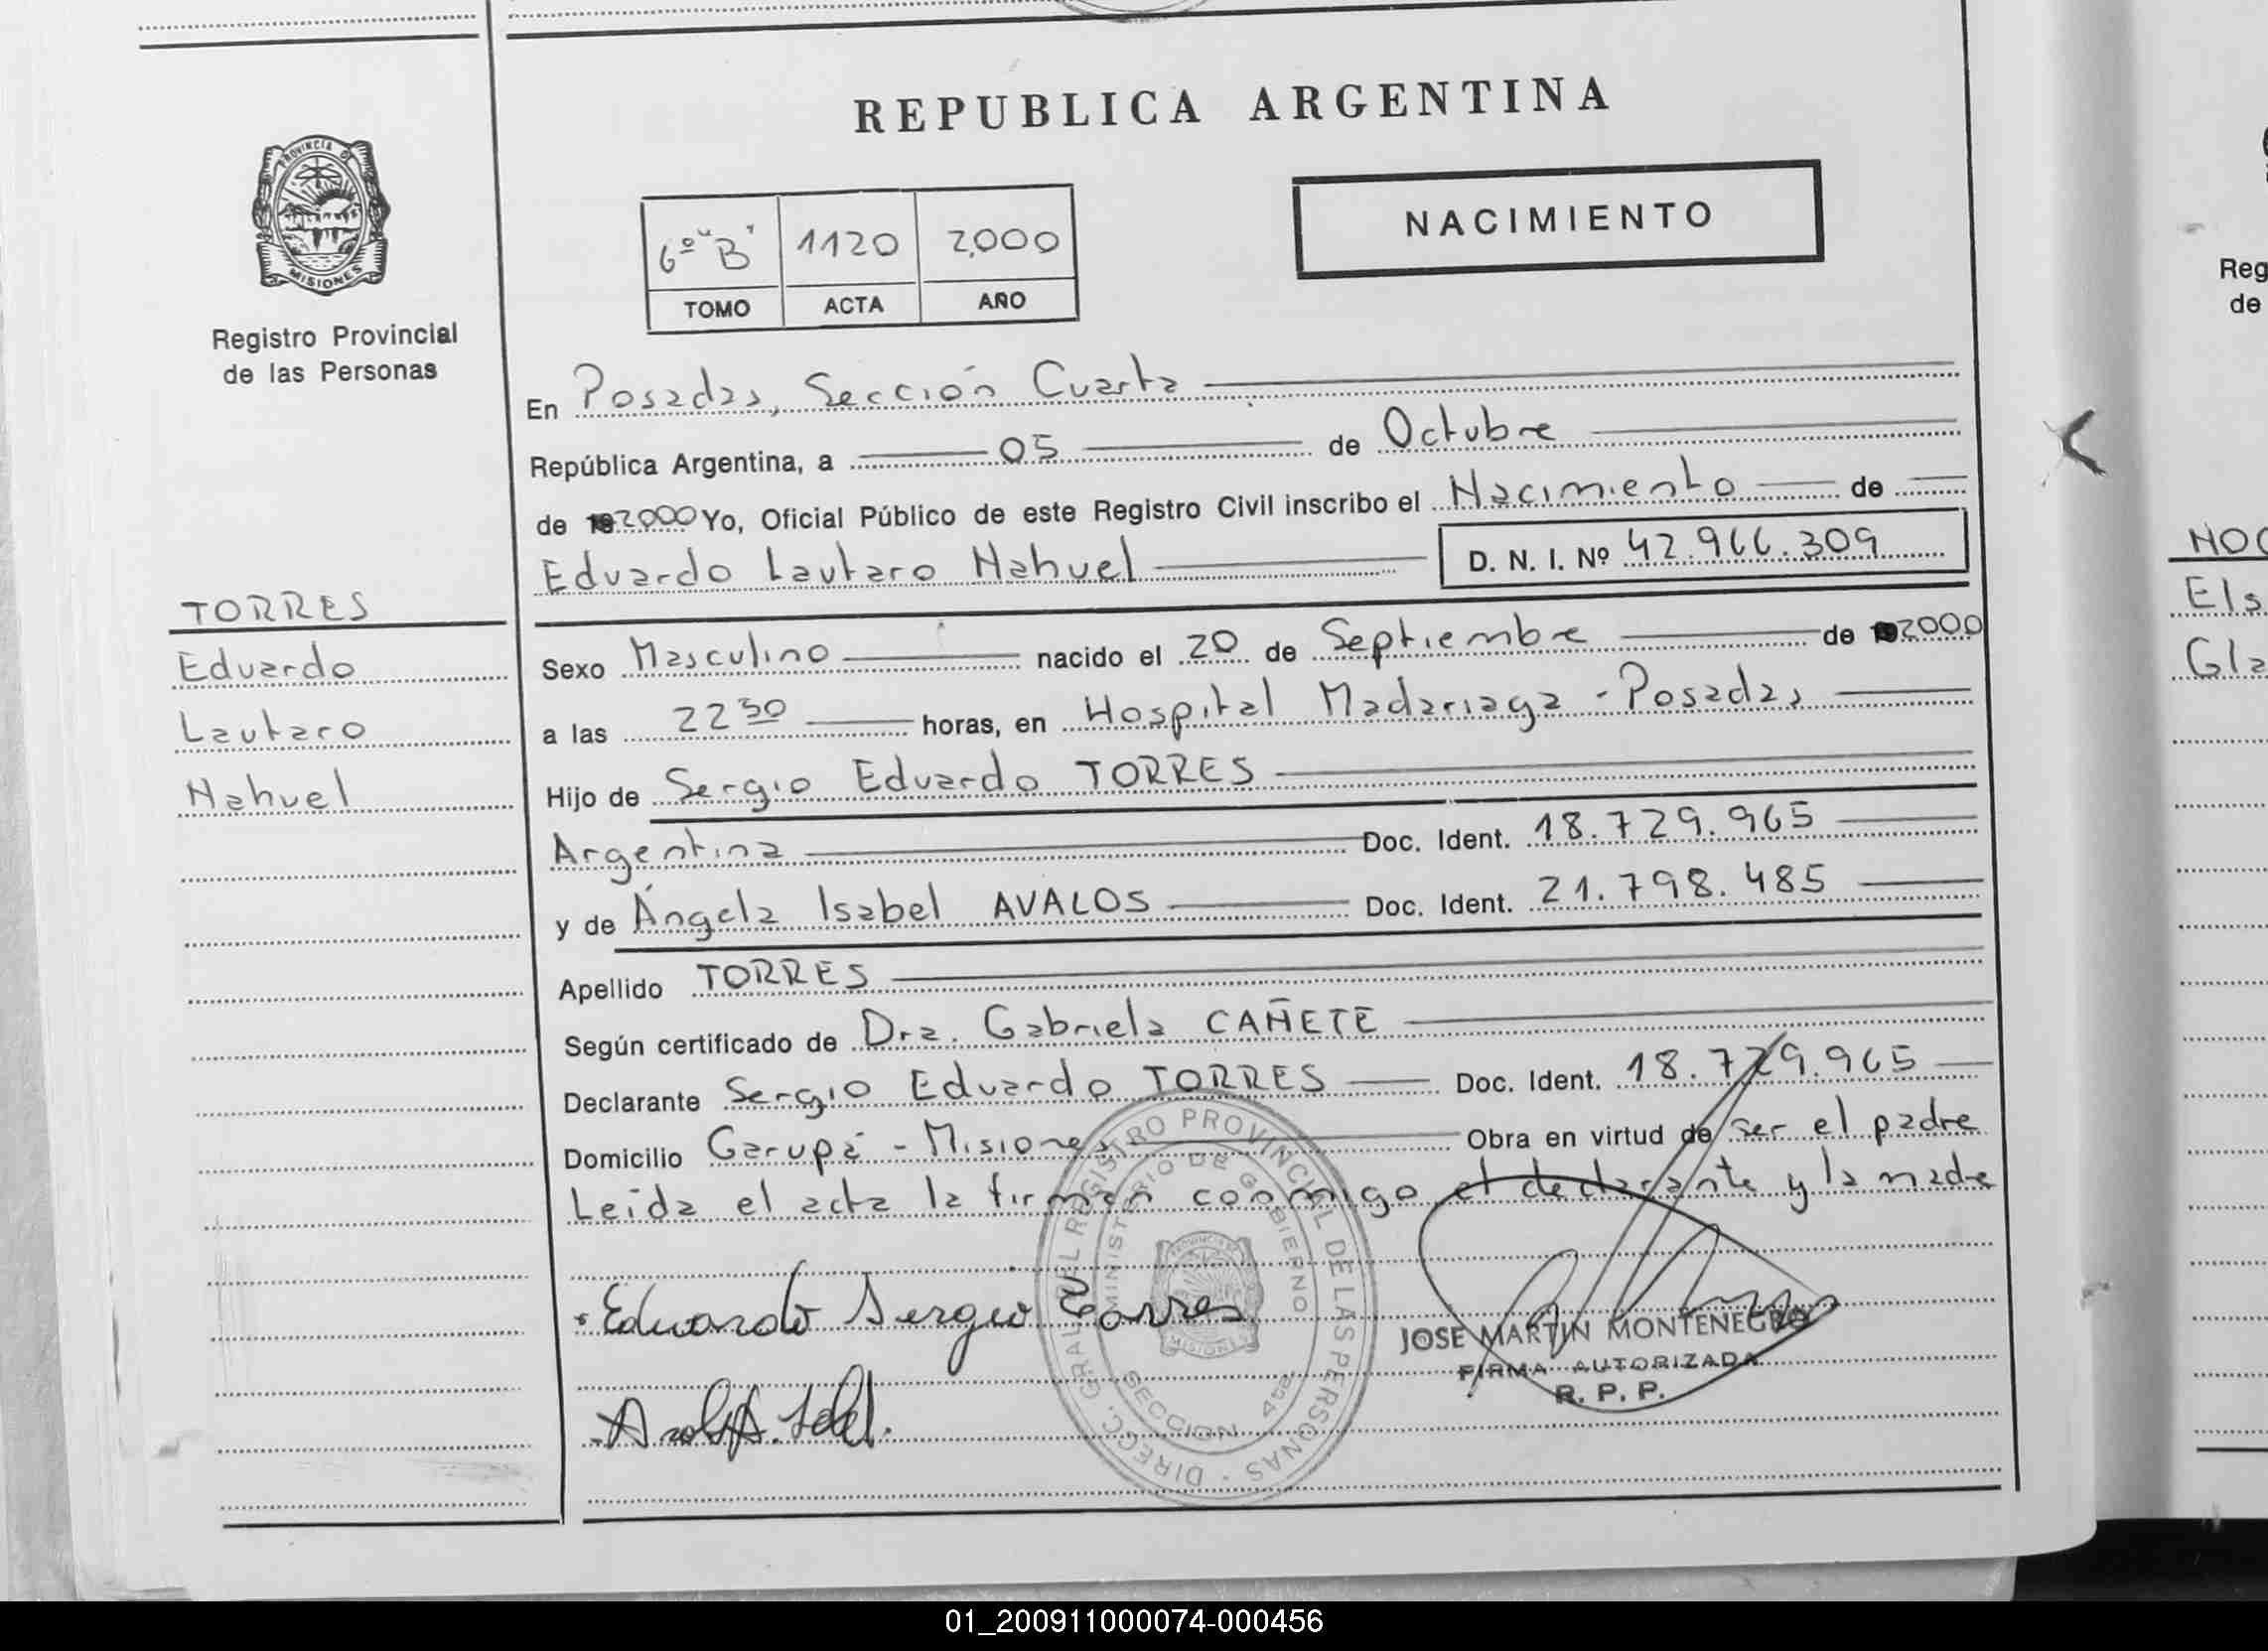 REPUBLICA ARGENTINA
PROVINCIA D
MISIONES
Registro Provincial
de las Personas
6º "B" 1120 2,000
TOMO ACTA AÑO
NACIMIENTO
TORRES
Eduardo
Lautaro
Nahuel
En Posadas, Sección Cuarta
República Argentina, a 05 de Octubre
de 2000 Yo, Oficial Público de este Registro Civil inscribo el Nacimiento de
Eduardo Lautaro Nahuel D. N. I. Nº 42.966.309
Sexo Masculino nacido el 20 de Septiembre de 2000
a las 22 30 horas, en Hospital Madariaga - Posadas
Hijo de Sergio Eduardo TORRES
Argentina Doc. Ident. 18.729.965
y de Ángela Isabel AVALOS Doc. Ident. 21.798.485
Apellido TORRES
Según certificado de Dra. Gabriela CAÑETE
Declarante Sergio Eduardo TORRES Doc. Ident. 18.729.965
Domicilio Garupá - Misiones Obra en virtud de ser el padre
Leída el acta la firman conmigo el declarante y la madre
Eduardo Sergio Torres
DIRECC. GRAL. DEL REGISTRO PROVINCIAL DE LAS PERSONAS
MINISTERIO DE GOBIERNO
SECCION 4ta
JOSE MARTIN MONTENEGRO
FIRMA AUTORIZADA
R. P. P.
Reg
de
Els
Gla
01_200911000074-000456